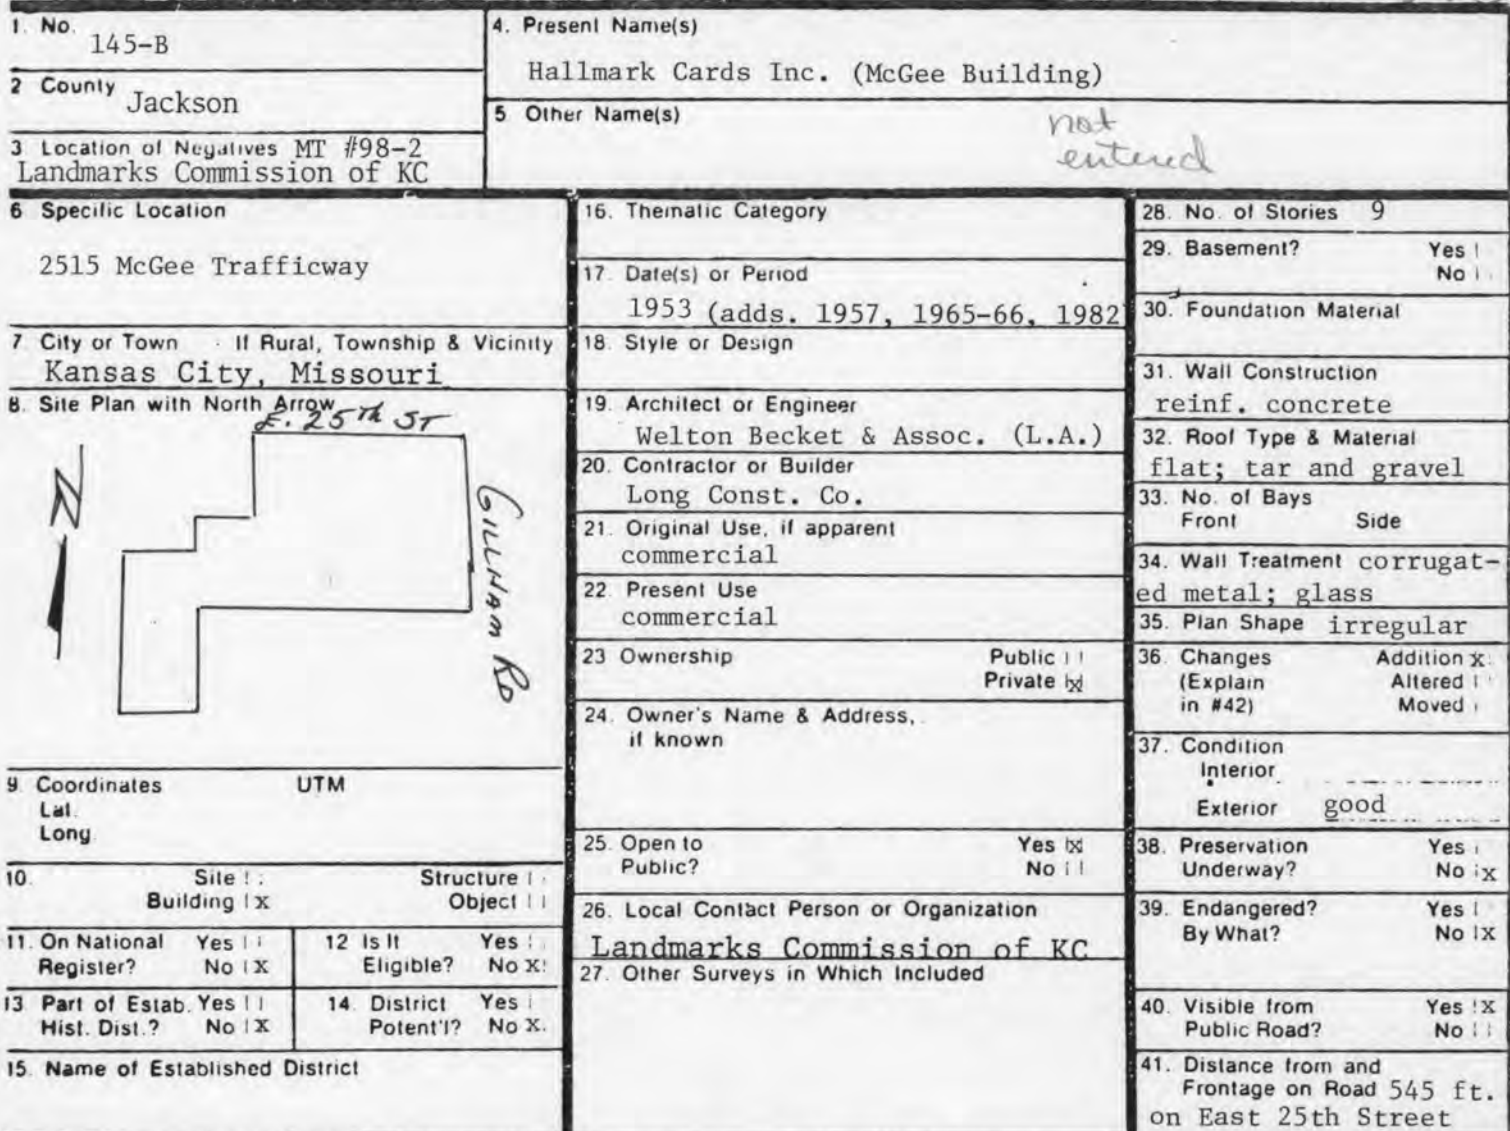 1. No.
145-B
2 County
Jackson
3 Location of Negatives MT #98-2
Landmarks Commission of KC
4. Present Name(s)
Hallmark Cards Inc. (McGee Building)
5 Other Name(s)
not
entered
6 Specific Location
2515 McGee Trafficway
7. City or Town If Rural, Township & Vicinity
Kansas City, Missouri
8. Site Plan with North Arrow
E. 25th ST
N
GILLHAM RD
9. Coordinates UTM
Lat.
Long.
10. Site Structure
Building X Object
11. On National Yes
Register? No X
12 Is It Yes
Eligible? No X
13 Part of Estab. Yes
Hist. Dist.? No X
14. District Yes
Potent'l? No X.
15. Name of Established District
16. Thematic Category
17. Date(s) or Period
1953 (adds. 1957, 1965-66, 1982
18. Style or Design
19. Architect or Engineer
Welton Becket & Assoc. (L.A.)
20. Contractor or Builder
Long Const. Co.
21. Original Use, if apparent
commercial
22. Present Use
commercial
23 Ownership Public
Private X
24. Owner's Name & Address,
if known
25. Open to Yes X
Public? No
26. Local Contact Person or Organization
Landmarks Commission of KC
27. Other Surveys in Which Included
28. No. of Stories 9
29. Basement? Yes
No
30. Foundation Material
31. Wall Construction
reinf. concrete
32. Roof Type & Material
flat; tar and gravel
33. No. of Bays
Front Side
34. Wall Treatment corrugat-
ed metal; glass
35. Plan Shape irregular
36. Changes Addition X
(Explain Altered
in #42) Moved
37. Condition
Interior
Exterior good
38. Preservation Yes
Underway? No X
39. Endangered? Yes
By What? No X
40. Visible from Yes X
Public Road? No
41. Distance from and
Frontage on Road 545 ft.
on East 25th Street